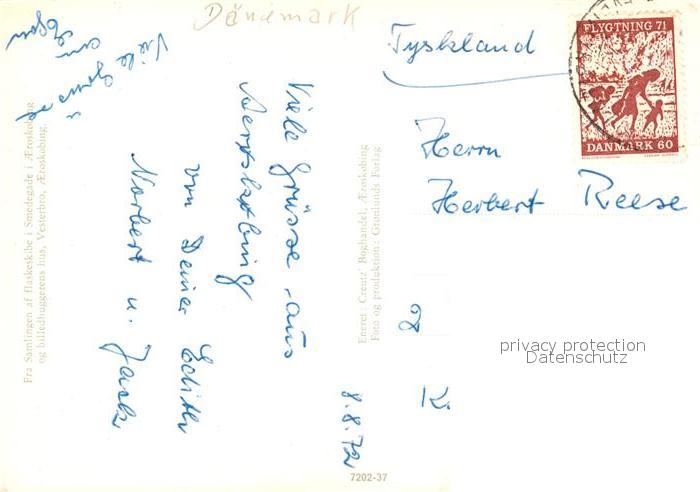 Dänemark
Tyskland
FLYGTNING 71
DANMARK 60
Viele Grüsse
an
Viele Grüsse aus
Aerosköbing
von Deiner Edith
Norbert u. Jack
8.8.72
Herrn
Herbert Reese
K.
Fra Samlingen af flaskeskibe i Smedegade i Ærøskøbing
og billedhuggerens hus, Vesterbro, Ærøskøbing.
Eneret: Creutz' Boghandel, Ærøskøbing
Foto og produktion: Grønlunds Forlag
7202-37
privacy protection
Datenschutz